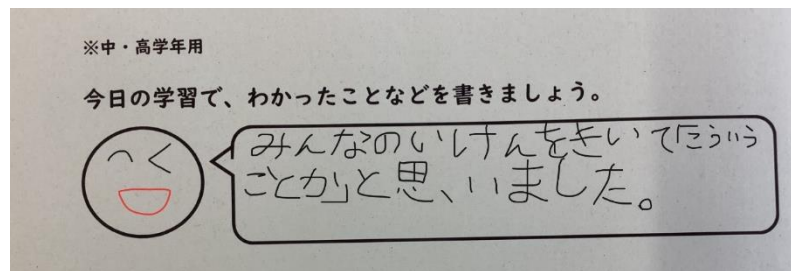 ※中・高学年用
今日の学習で、わかったことなどを書きましょう。
みんなのいけんをきいて「こういう
ことか」と思、いました。